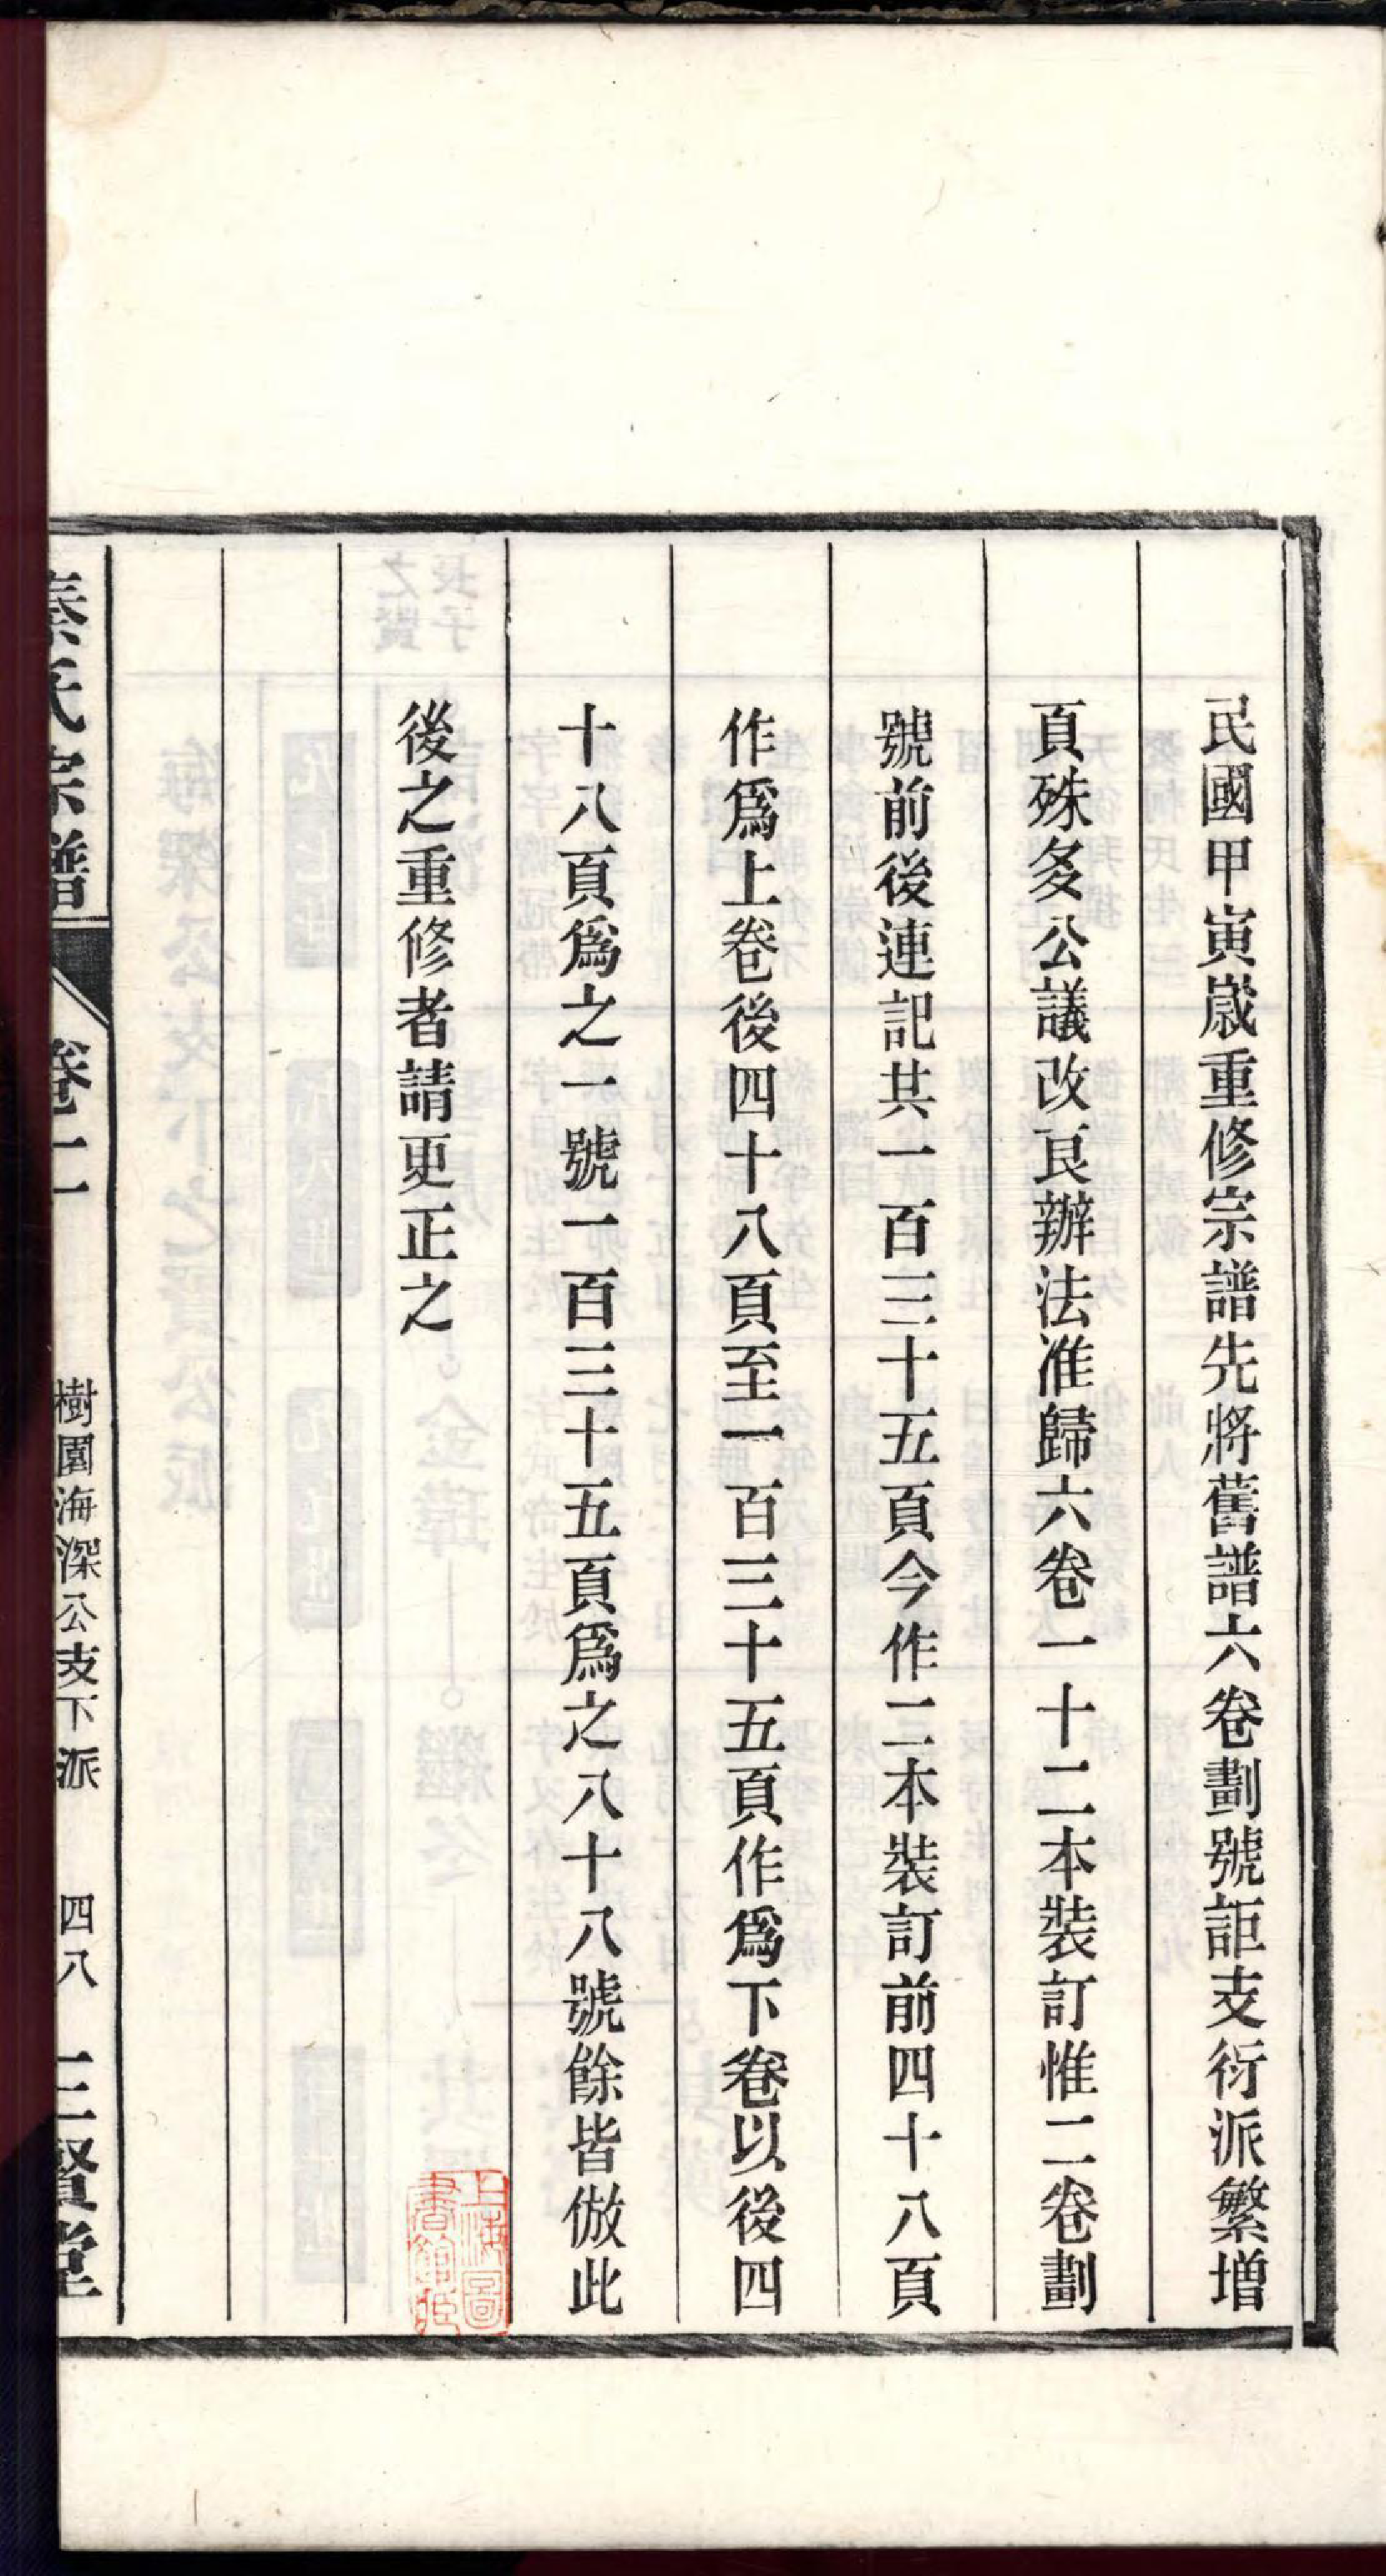 民國甲寅嵗重修宗譜先將舊譜六卷劃號詎支衍派繁增
頁殊多公議改良辦法准歸六卷一十二本裝訂惟二卷劃
號前後連記共一百三十五頁今作二本裝訂前四十八頁
作爲上卷後四十八頁至一百三十五頁作爲下卷以後四
十八頁爲之一號一百三十五頁爲之八十八號餘皆倣此
後之重修者請更正之
秦氏宗譜 卷二 樹園海深公支下派 四八 三賢堂
上海圖書館藏